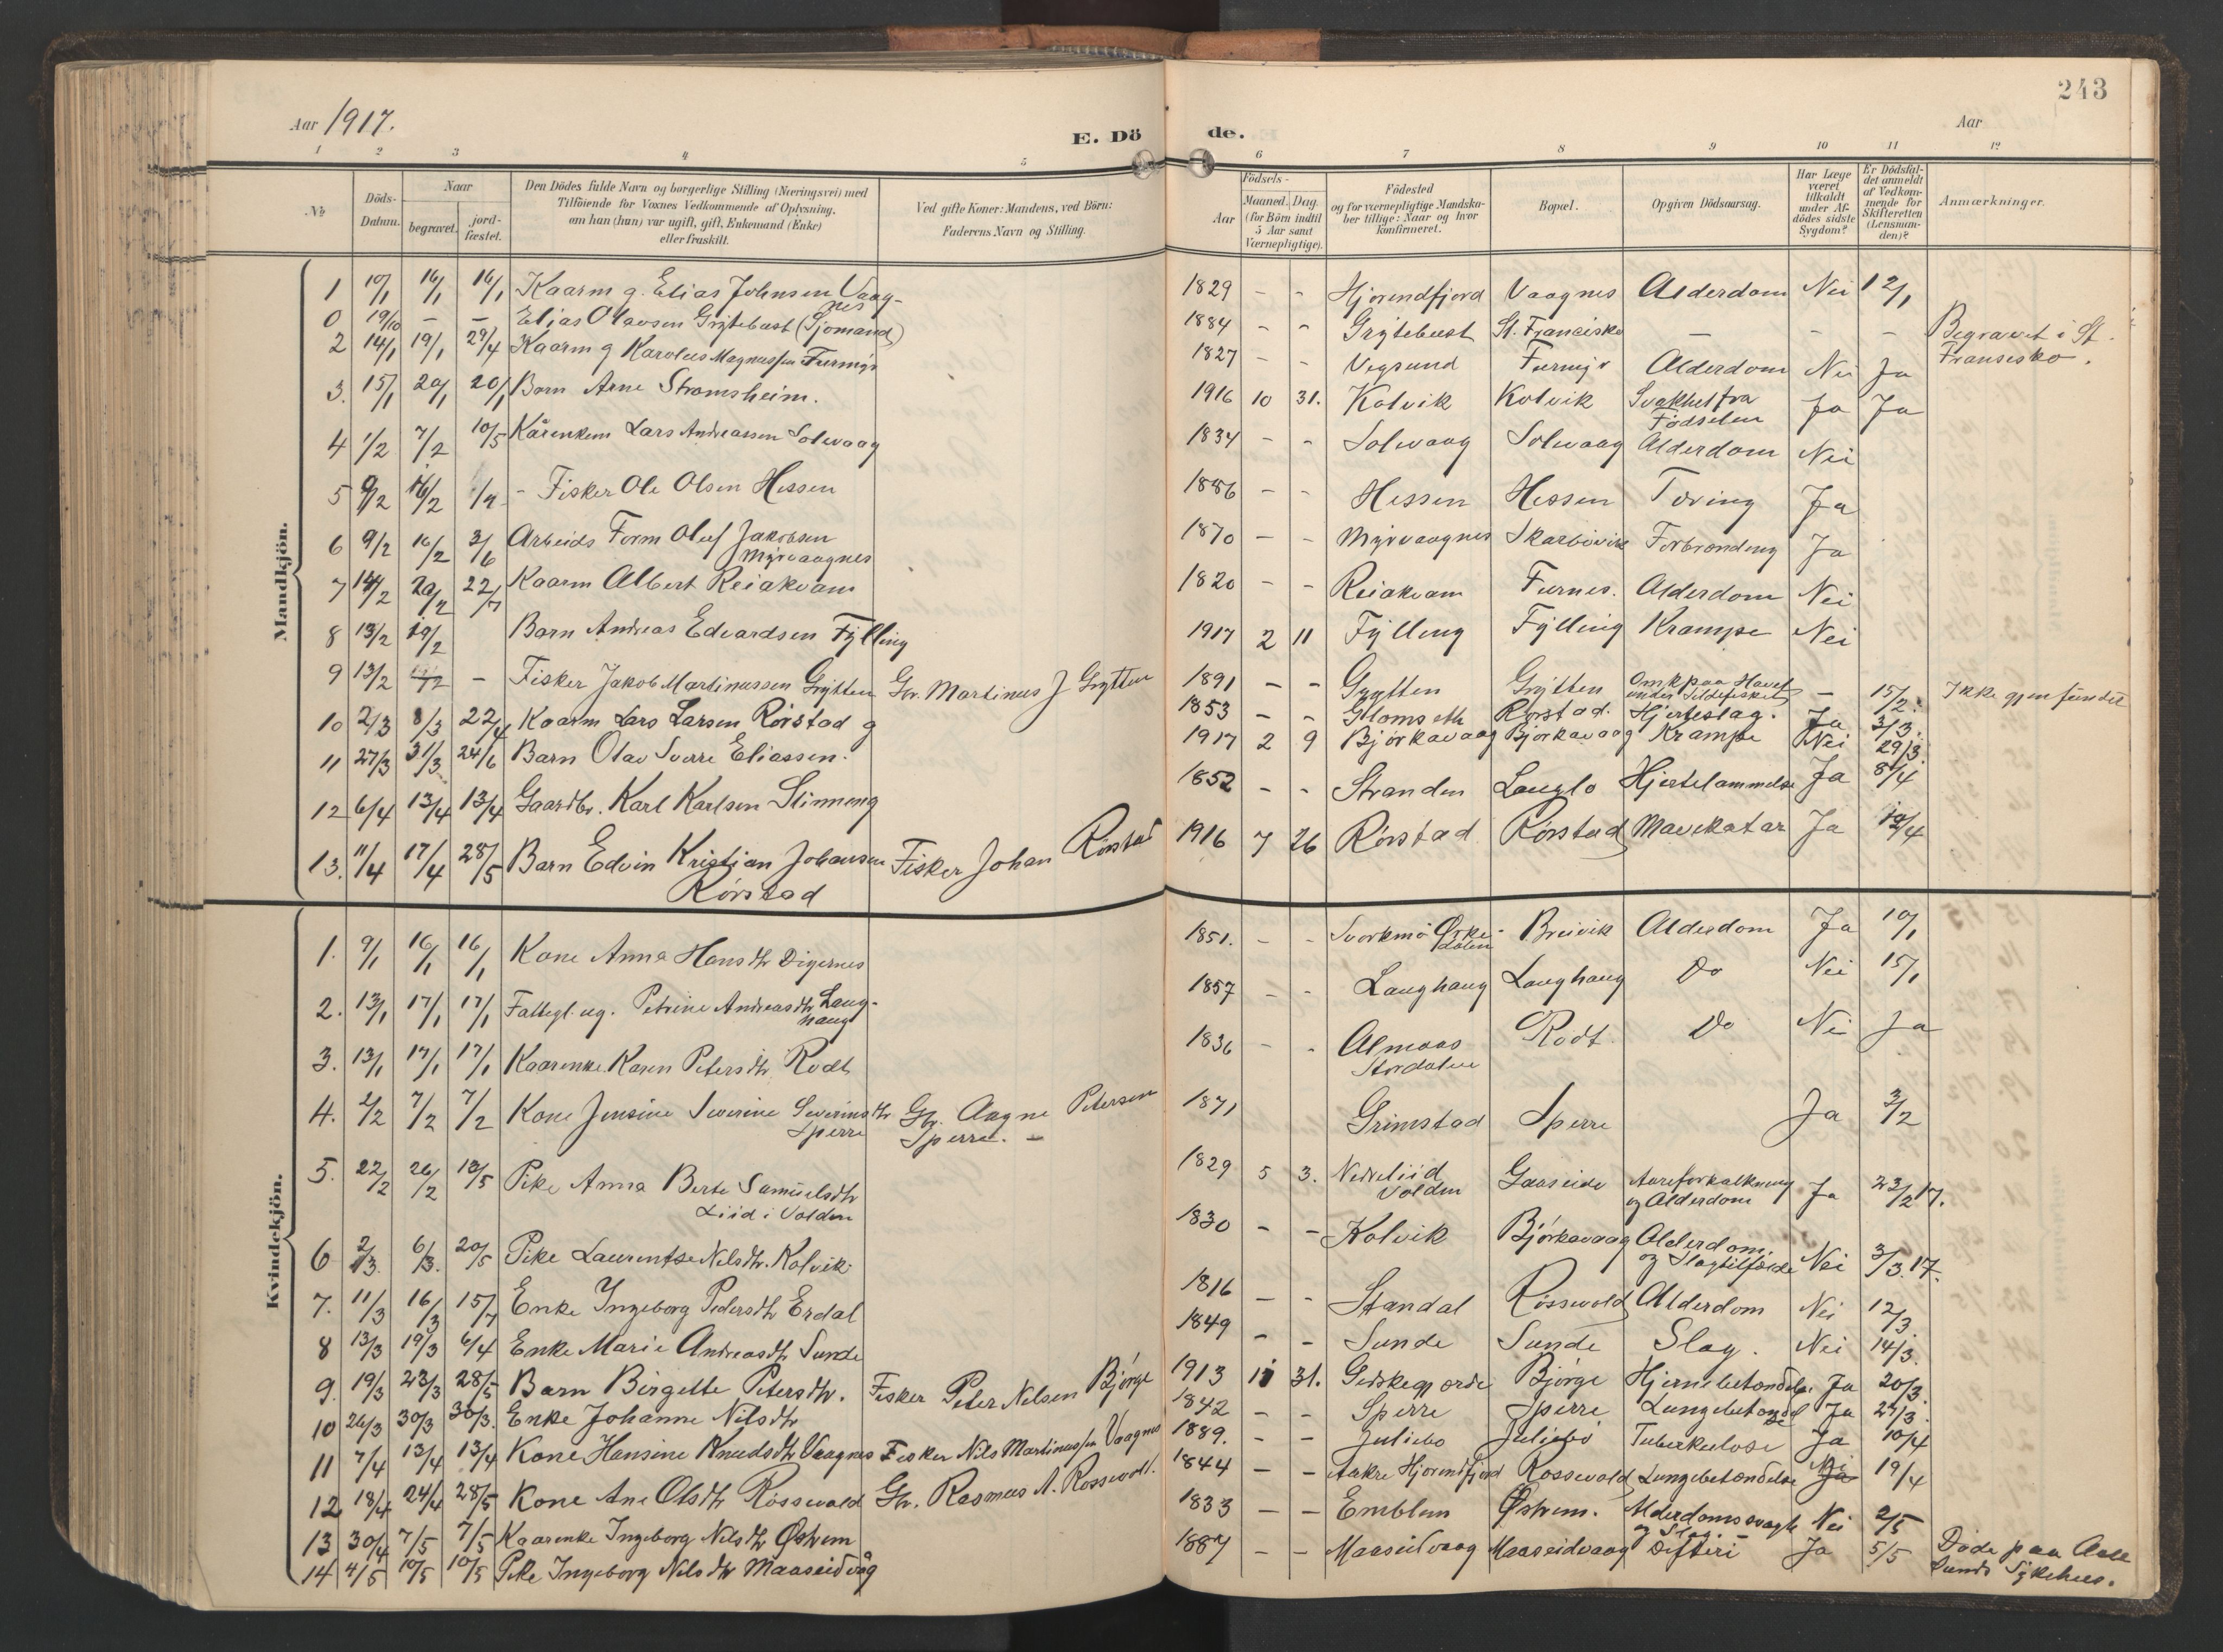 243
Aar 1917.
E. Döde.
Aar
1 2 3 4 5 6 7 8 9 10 11 12
No.
Döds-Datum.
Naar
begravet.
jord-fæstet.
Den Dödes fulde Navn og borgerlige Stilling (Næringsvei) med
Tilföiende for Voxnes Vedkommende af Oplysning,
om han (hun) var ugift, gift, Enkemand (Enke)
eller fraskilt.
Ved gifte Koner: Mandens, ved Börn:
Faderens Navn og Stilling.
Födsels-
Aar
Maaned. Dag.
(for Börn indtil
5 Aar samt
Værnepligtige).
Födested
og for værnepligtige Mandska-
ber tillige: Naar og hvor
konfirmeret.
Bopæl.
Opgiven Dödsaarsag.
Har Læge
været
tilkaldt
under Af-
dödes sidste
Sygdom?
Er Dödsfal-
det anmeldt
af Vedkom-
mende for
Skifteretten
(Lensman-
den)?
Anmærkninger.
Mandkjön.
1 10/1 16/1 16/1 Kaarm g. Elias Johnsen Vaag-nes 1829 - - Hjørendfjord Vaagnes Alderdom Nei 12/1
0 19/10 - - Elias Olavsen Grytebust (Sjømand) 1884 - - Grytebust St. Francisko - - - Begravet i St. Fransisko.
2 14/1 19/1 29/4 Kaarm g Karolus Magnussen Furmyr 1827 - - Vegsund Furmyr Alderdom Nei Ja
3. 15/1 20/1 20/1 Barn Arne Strømsheim. 1916 10 31. Kolvik Kolvik Svakhet fra Fødselen Ja Ja
4 1/2 7/2 10/5 Kårenkem Lars Andreassen Solevaag 1834 - - Solevaag Solevaag Alderdom Nei
5 9/2 16/2 - Fisker Ole Olsen Hessen 1886 - - Hessen Hessen Tæring Ja
6 9/2 16/2 3/6 Arbeids Form Oluf Jakobsen Myrvaagnes 1870 - - Myrvaagnes Forbrænding Ja
7 14/2 20/2 22/7 Kaarm Albert Reiakvam 1820 - - Reiakvam Furnes. Alderdom Nei
8 13/2 19/2 Barn Andreas Edvardsen Fylling 1917 2 11 Fylling Fylling Krampe Nei
9 13/2 - Fisker Jakob Martinussen Grytten Gbr. Martinus J Grytten 1891 - - Grytten Grytten Omk paa Havet under Sildefisket - 15/2. Ikke gjenfundet
10 2/3 8/3 22/4 Kaarm Lars Larsen Rørstad g 1853 - - Glomseth Rørstad. Hjerteslag. Ja 3/3.
11 27/3 31/3 24/6 Barn Olav Sverre Eliassen. 1917 2 9 Bjørkavaag Bjørkavaag Krampe Nei 29/3.
12 6/4 13/4 13/4 Gaardbr. Karl Karlsen Slinneng 1852 - - Stranden Langlo Hjertelammelse Ja 8/4
13. 11/4 17/4 28/5 Barn Edvin Kristian Johansen Rørstad Fisker Johan Rørstad 1916 7 26 Rørstad Rørstad Mavekatar Ja 12/4
Kvindekjön.
1. 9/1 16/1 16/1 Kone Anna Hansdtr Digernes 1851. - - Svorkmo Ørke-dalen Breivik Alderdom Ja 10/1
2. 13/1 17/1 17/1 Fattigl. ug. Petrine Andreasdtr Lang-haug 1857 - - Langhaug Langhaug Do Nei 15/1
3. 13/1 17/1 17/1 Kaarenke Karen Petersdtr Rødt 1836 - - Almaas Stordalen Rødt Do Nei Ja
4. 2/2 7/2 7/2 Kone Jensine Severine Severinsdtr Sperre Gbr. Aagne Petersen Sperre. - 1871 Grimstad Sperre Ja 3/2
5. 22/2 26/2 13/5 Pike Anna Berte Samuelsdtr Liid i Volden 1829 5 3. Nedreliid Volden Gaaseide Aareforkalkning og Alderdom Ja 23/2 17.
6 2/3. 6/3. 20/5 Pike Laurentse Nilsdtr. Kolvik 1830 - - Kolvik Bjørkavaag Alderdom. og Slagtilfælde Nei 3/3 17.
7. 11/3 16/3 15/7 Enke Ingeborg Pedersdtr Erdal 1816 - - Standal Røssevold Alderdom Nei 12/3
8 13/3 19/3 6/4 Enke Marie Andreasdtr Sunde 1849 - - Sunde Sunde Slag. Nei 14/3.
9. 19/3 23/3 28/5 Barn Birgitte Petersdtr. Fisker Peter Nilsen Bjørge 1913 1 31. Gidskegjærde Bjørge Hjernebetændelse Ja 20/3.
10 26/3 30/3 30/3. Enke Johanne Nilsdtr 1842 - - Sperre Sperre Lungebetændelse Ja 27/3.
11 7/4 13/4 13/4 Kone Hansine Knudsdtr Vaagnes Fisker Nils Martinussen Vaagnes 1889. - - Juliebø Juliebø Tuberkulose Ja 10/4
12 18/4 24/4 28/5 Kone Ane Olsdtr Røssevold Gbr. Rasmus A. Røssevold. 1844 - - Aakre Hjørendfjord Røssevold Lungebetændelse Nei 19/4
13 30/4 7/5 7/5 Kaarenke Ingeborg Nilsdtr Østrem 1833 - - Emblem Østrem. Alderdomssvaghet og Slag. - Nei 2/5
14 4/5 10/5 10/5 Pike Ingeborg Nilsdtr Maaseidvåg 1887 - - Maaseidvaag Maaseidvaag Difteri Ja 5/5 Døde paa Aalesunds Sykehus.